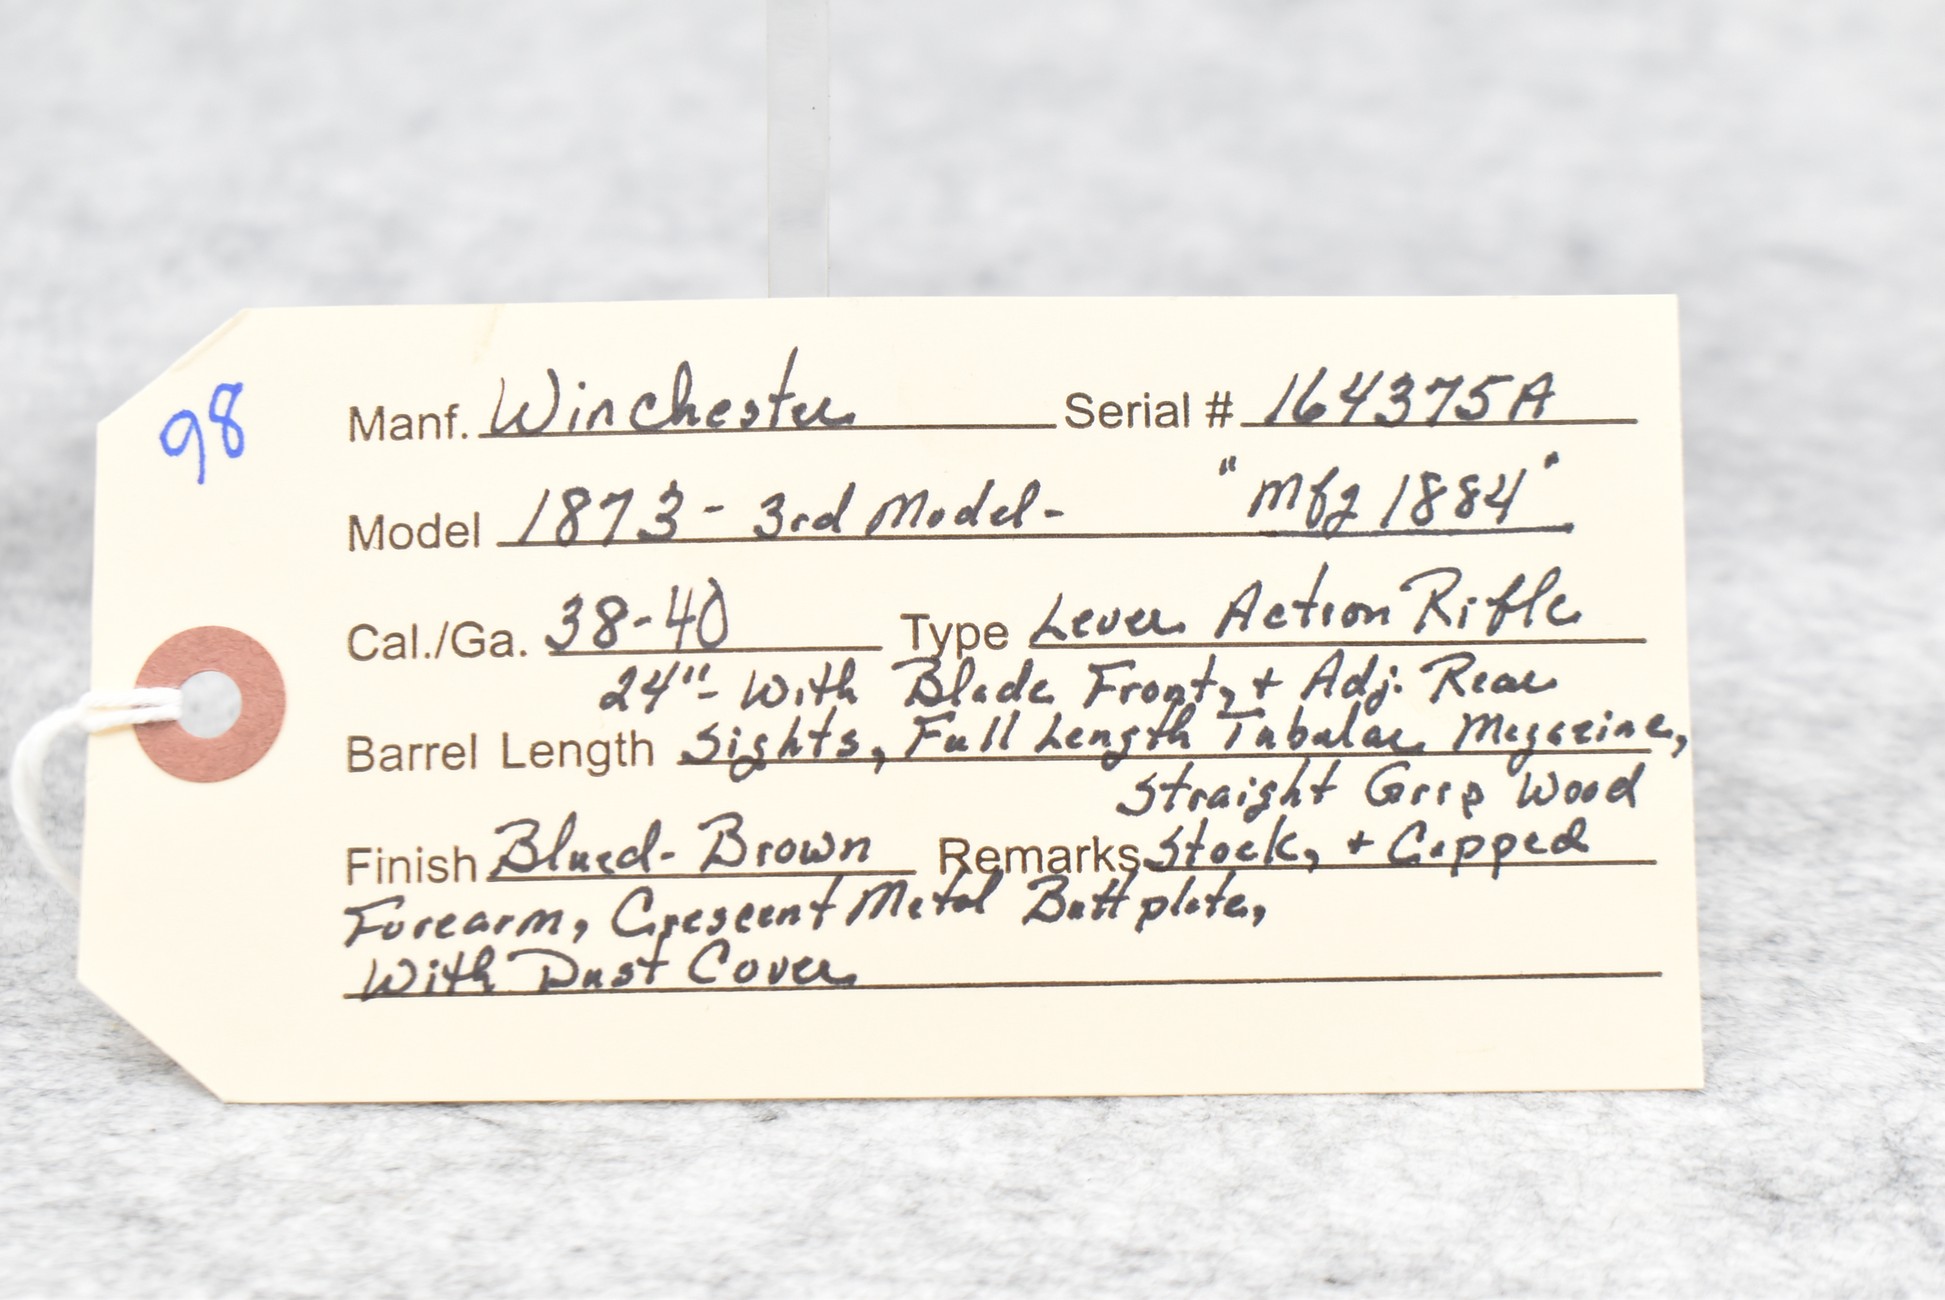 98
Manf. Winchester Serial # 164375A
Model 1873 - 3rd Model - "Mfg 1884"
Cal./Ga. 38-40 Type Lever Action Rifle
24" - With Blade Front, + Adj. Rear
Barrel Length Sights, Full Length Tubular Magazine,
Straight Grip Wood
Finish Blued-Brown Remarks Stock, + Capped
Forearm, Crescent Metal Buttplate,
With Dust Cover